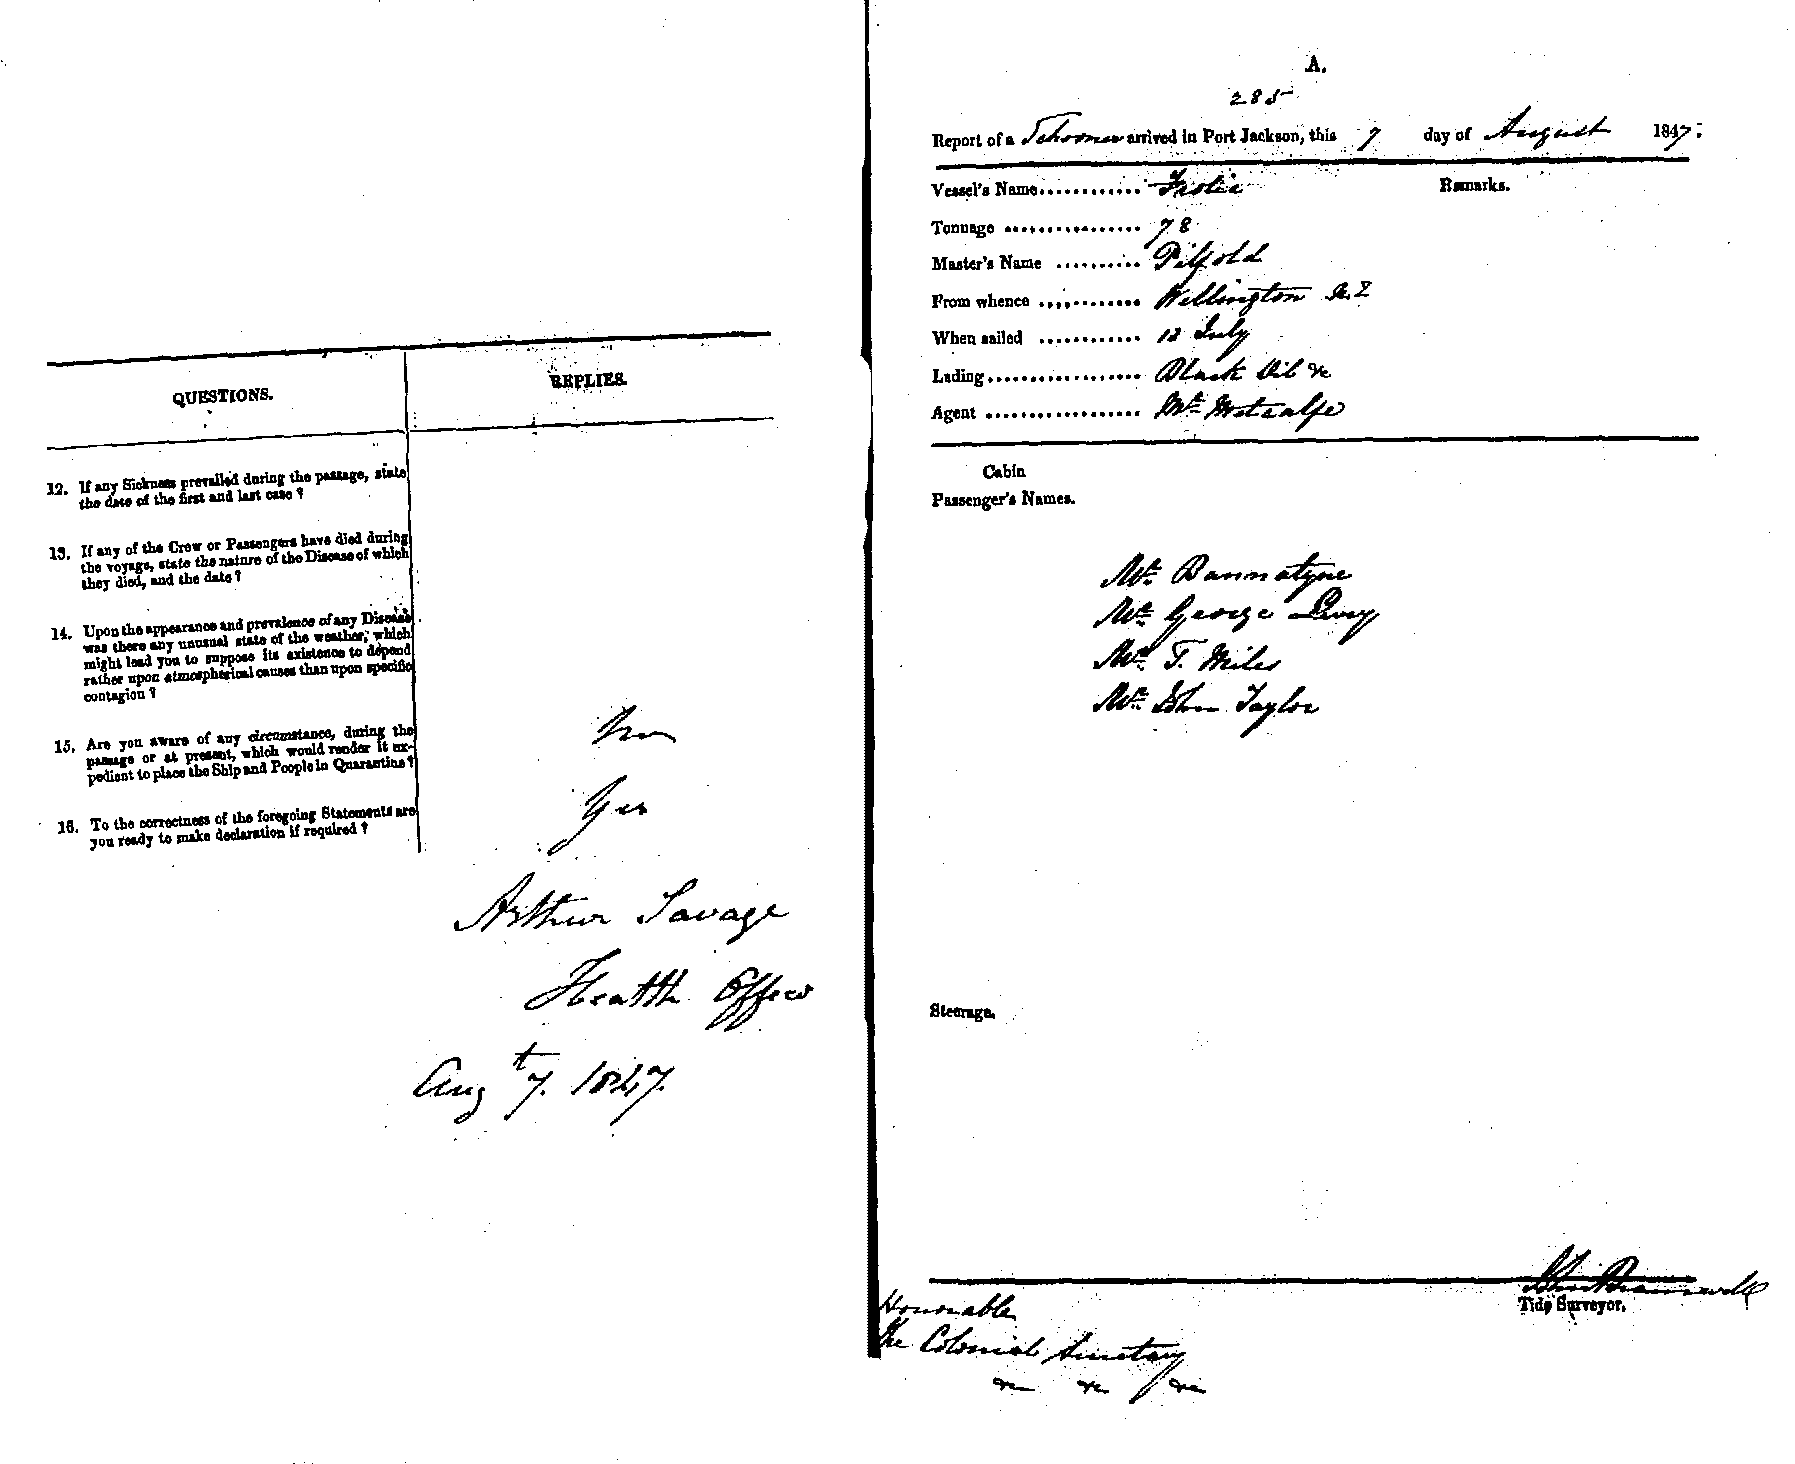 QUESTIONS.
REPLIES.
12. If any Sickness prevailed during the passage, state
the date of the first and last case ?
13. If any of the Crew or Passengers have died during
the voyage, state the nature of the Disease of which
they died, and the date ?
14. Upon the appearance and prevalence of any Disease
was there any unusual state of the weather, which
might lead you to suppose its existence to depend
rather upon atmospherical causes than upon specific
contagion ?
15. Are you aware of any circumstance, during the
passage or at present, which would render it ex-
pedient to place the Ship and People in Quarantine ?
No
16. To the correctness of the foregoing Statements are
you ready to make declaration if required ?
Yes
Arthur Savage
Health Officer
Augt 7. 1847.
A.
285
Report of a Schooner arrived in Port Jackson, this 7 day of August 1847.
Vessel's Name............ Frolic
Remarks.
Tonnage ................ 78
Master's Name .......... Pilfold
From whence ............ Wellington N.Z
When sailed ............ 12 July
Lading.................. Black Oil &c
Agent .................. Mr Metcalfe
Cabin
Passenger's Names.
Mr Bannatyne
Mr George Levy
Mr T. Miles
Mr John Taylor
Steerage.
John Bramwell
Tide Surveyor.
Honorable
The Colonial Secretary
&c &c &c